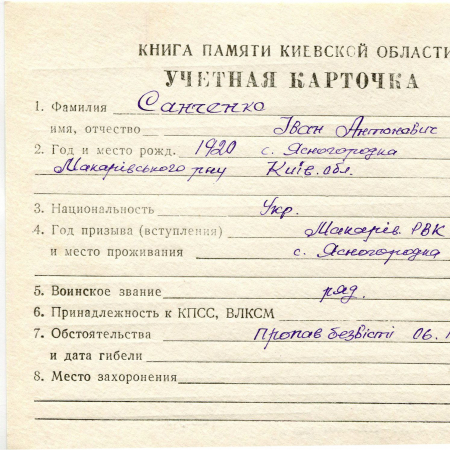 КНИГА ПАМЯТИ КИЕВСКОЙ ОБЛАСТИ
УЧЕТНАЯ КАРТОЧКА
1. Фамилия Санченко
имя, отчество Іван Антонович
2. Год и место рожд. 1920 с. Ясногородка
Макарівського р-ну Київ. обл.
3. Национальность Укр.
4. Год призыва (вступления) Макарів. РВК
и место проживания с. Ясногородка
5. Воинское звание ряд.
6. Принадлежность к КПСС, ВЛКСМ
7. Обстоятельства Пропав безвісті 06.
и дата гибели
8. Место захоронения